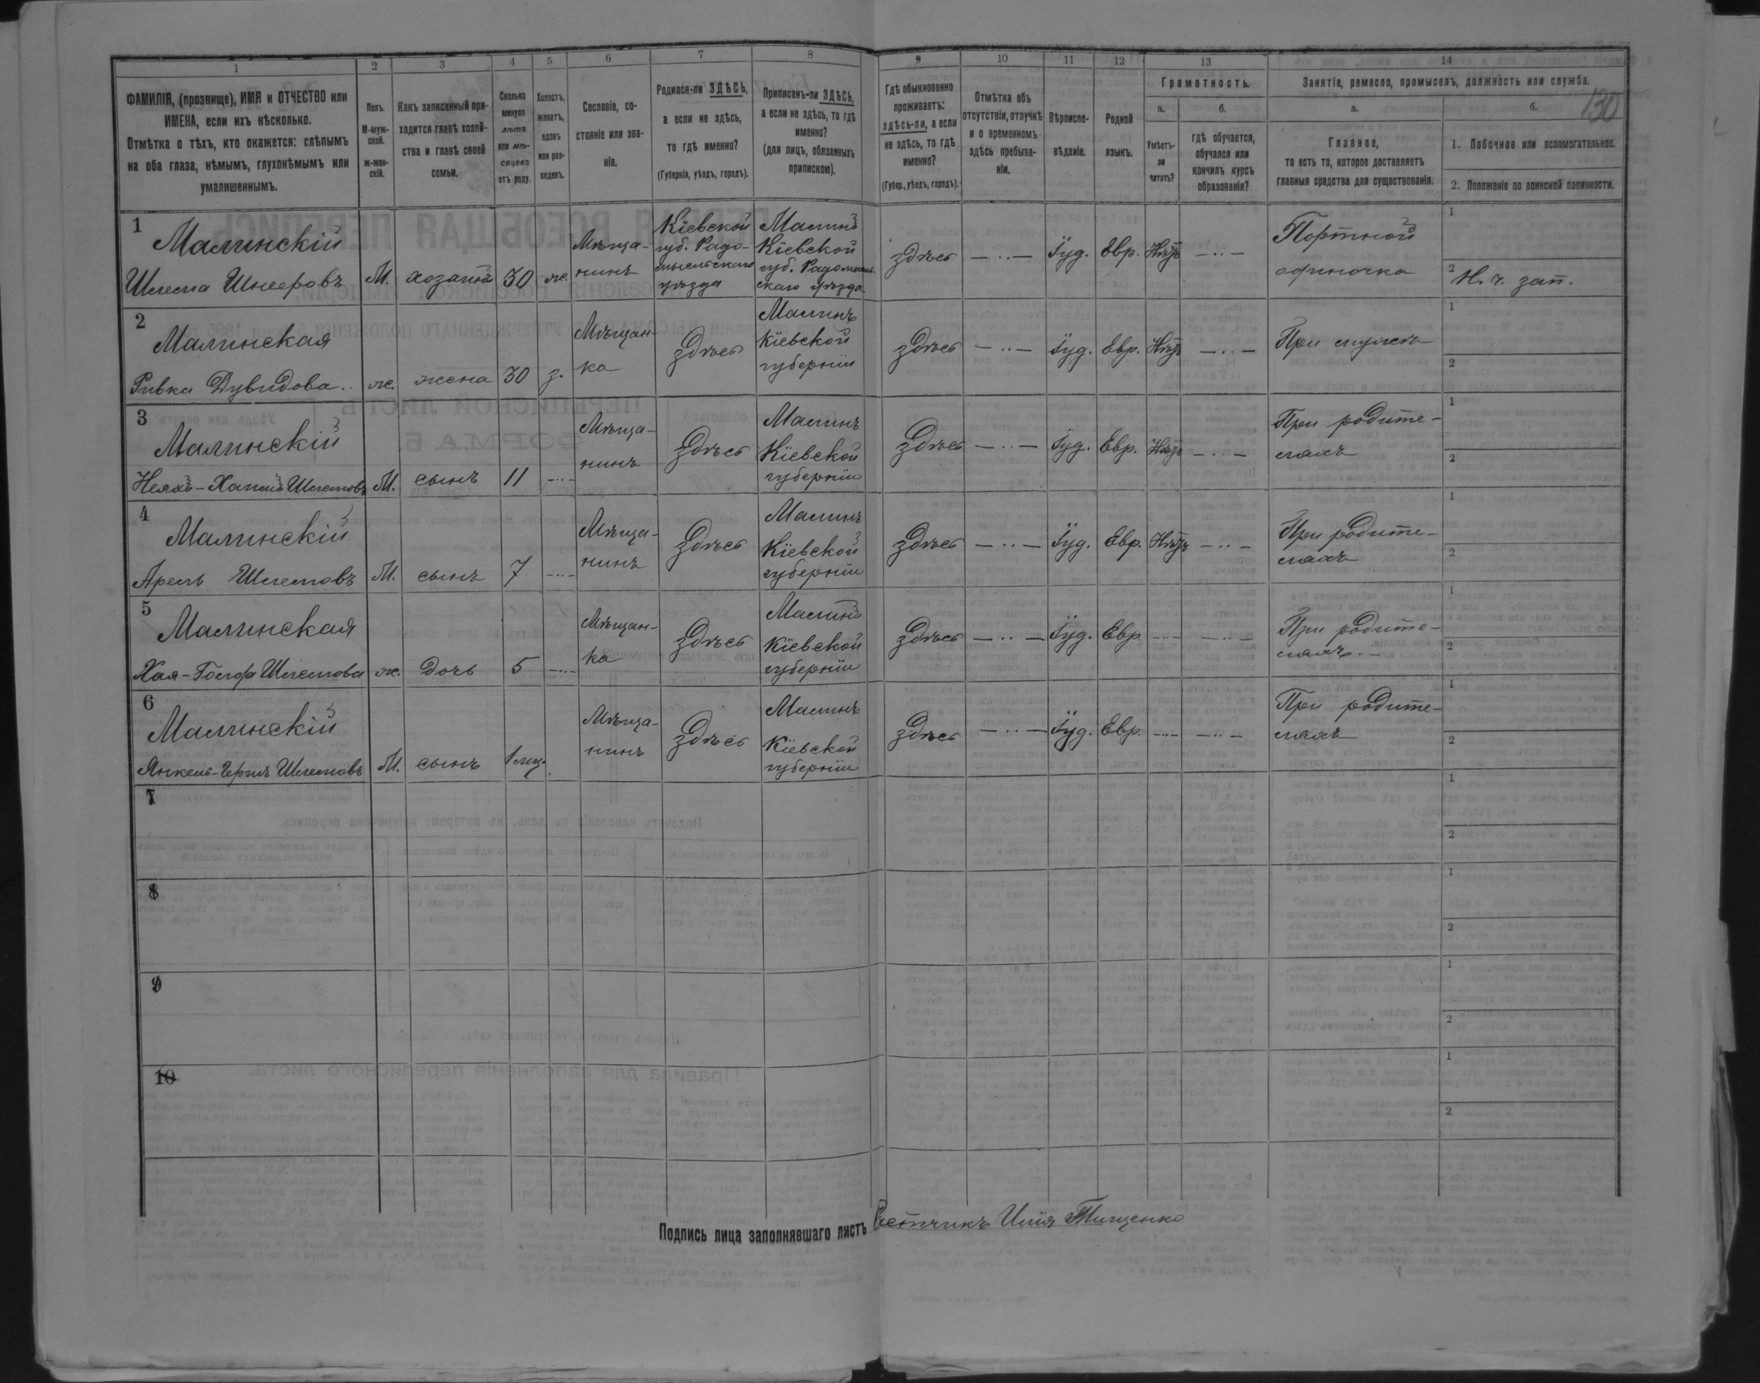 130
1 2 3 4 5 6 7 8 9 10 11 12 13 14
ФАМИЛІЯ, (прозвище), ИМЯ и ОТЧЕСТВО или
ИМЕНА, если ихъ нѣсколько.
Отмѣтка о тѣхъ, кто окажется: слѣпымъ
на оба глаза, нѣмымъ, глухонѣмымъ или
умалишеннымъ.
Полъ.
М-муж-
ской.
ж-жен-
скій.
Какъ записанный при-
ходится главѣ хозяй-
ства и главѣ своей
семьи.
Сколько
минуло
лѣтъ
или мѣ-
сяцевъ
отъ роду.
Холостъ,
женатъ,
вдовъ
или раз-
веденъ.
Сословіе, со-
стояніе или зва-
ніе.
Родился-ли ЗДѢСЬ,
а если не здѣсь,
то гдѣ именно?
(Губернія, уѣздъ, городъ).
Приписанъ-ли ЗДѢСЬ,
а если не здѣсь, то гдѣ
именно?
(для лицъ, обязанныхъ
припискою).
Гдѣ обыкновенно
проживаетъ:
здѣсь-ли, а если
не здѣсь, то гдѣ
именно?
(Губер., уѣздъ, городъ).
Отмѣтка объ
отсутствіи, отлучкѣ
и о временномъ
здѣсь пребыва-
ніи.
Вѣроиспо-
вѣданіе.
Родной
языкъ.
Грамотность.
а.
Умѣетъ-
ли
читать?
б.
гдѣ обучается,
обучался или
кончилъ курсъ
образованія?
Занятіе, ремесло, промыселъ, должность или служба.
а.
Главное,
то есть то, которое доставляетъ
главныя средства для существованія.
б.
1. Побочное или вспомогательное.
2. Положеніе по воинской повинности.
1
Малинскій
Шлема Шнееровъ
М.
хозяинъ
30
ж.
Мѣща-
нинъ
Кіевской
губ. Радо-
мысльскаго
уѣзда
Малинъ
Кіевской
губ. Радомысль-
скаго уѣзда
здѣсь
— .. —
Іуд.
Евр.
Нѣтъ
— .. —
Портной
одиночка
1
2
Н. ч. зап.
2
Малинская
Ривка Дувидова
ж.
жена
30
з.
Мѣщан-
ка
Здѣсь
Малинъ
Кіевской
губерніи
здѣсь
— .. —
Іуд.
Евр.
Нѣтъ
— .. —
При мужѣ
1
2
3
Малинскій
Шлемовъ
М.
сынъ
11
— .. —
Мѣща-
нинъ
Здѣсь
Малинъ
Кіевской
губерніи
Здѣсь
— .. —
Іуд.
Евр.
Нѣтъ
— .. —
При родите-
ляхъ
1
2
4
Малинскій
Арель Шлемовъ
М.
сынъ
7
— .. —
Мѣща-
нинъ
Здѣсь
Малинъ
Кіевской
губерніи
Здѣсь
— .. —
Іуд.
Евр.
Нѣтъ
— .. —
При родите-
ляхъ
1
2
5
Малинская
Шлемова
ж.
дочь
5
— .. —
Мѣщан-
ка
Здѣсь
Малинъ
Кіевской
губерніи
здѣсь
— .. —
Іуд.
Евр.
— .. —
— .. —
При родите-
ляхъ.
1
2
6
Малинскій
Шлемовъ
М.
сынъ
1 мц.
Мѣща-
нинъ
Здѣсь
Малинъ
Кіевской
губерніи
Здѣсь
— .. —
Іуд.
Евр.
— .. —
— .. —
При родите-
ляхъ
1
2
7
1
2
8
1
2
9
1
2
10
1
2
Подпись лица заполнявшаго листъ Счетчикъ Илія Тищенко